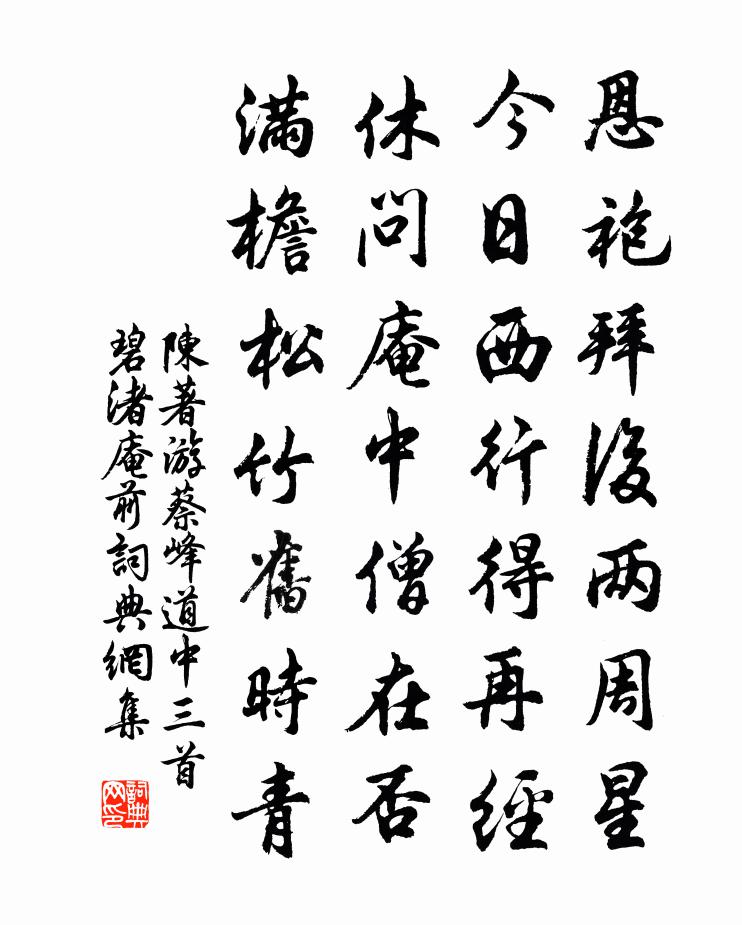 恩袍拜後两周星
今日西行得再經
休問庵中僧在否
滿檐松竹舊時青
陳著游蔡峰道中三首
碧渚庵前詞典網集
詞典网印